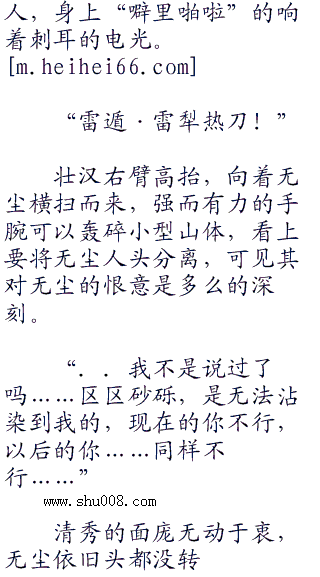 人，身上“噼里啪啦”的响
着刺耳的电光。
[m.heihei66.com]
“雷遁·雷犁热刀！”
壮汉右臂高抬，向着无
尘横扫而来，强而有力的手
腕可以轰碎小型山体，看上
要将无尘人头分离，可见其
对无尘的恨意是多么的深
刻。
“．．我不是说过了
吗……区区砂砾，是无法沾
染到我的，现在的你不行，
以后的你……同样不
行……”
www.shu008.com
清秀的面庞无动于衷，
无尘依旧头都没转